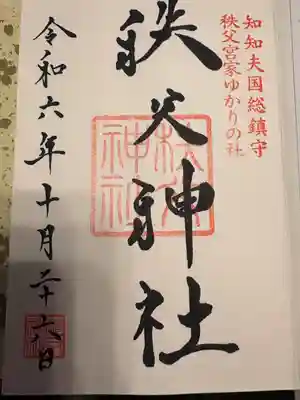 知知夫国総鎮守
秩父宮家ゆかりの社
秩父神社
秩父
神社
令和六年十月二十六日